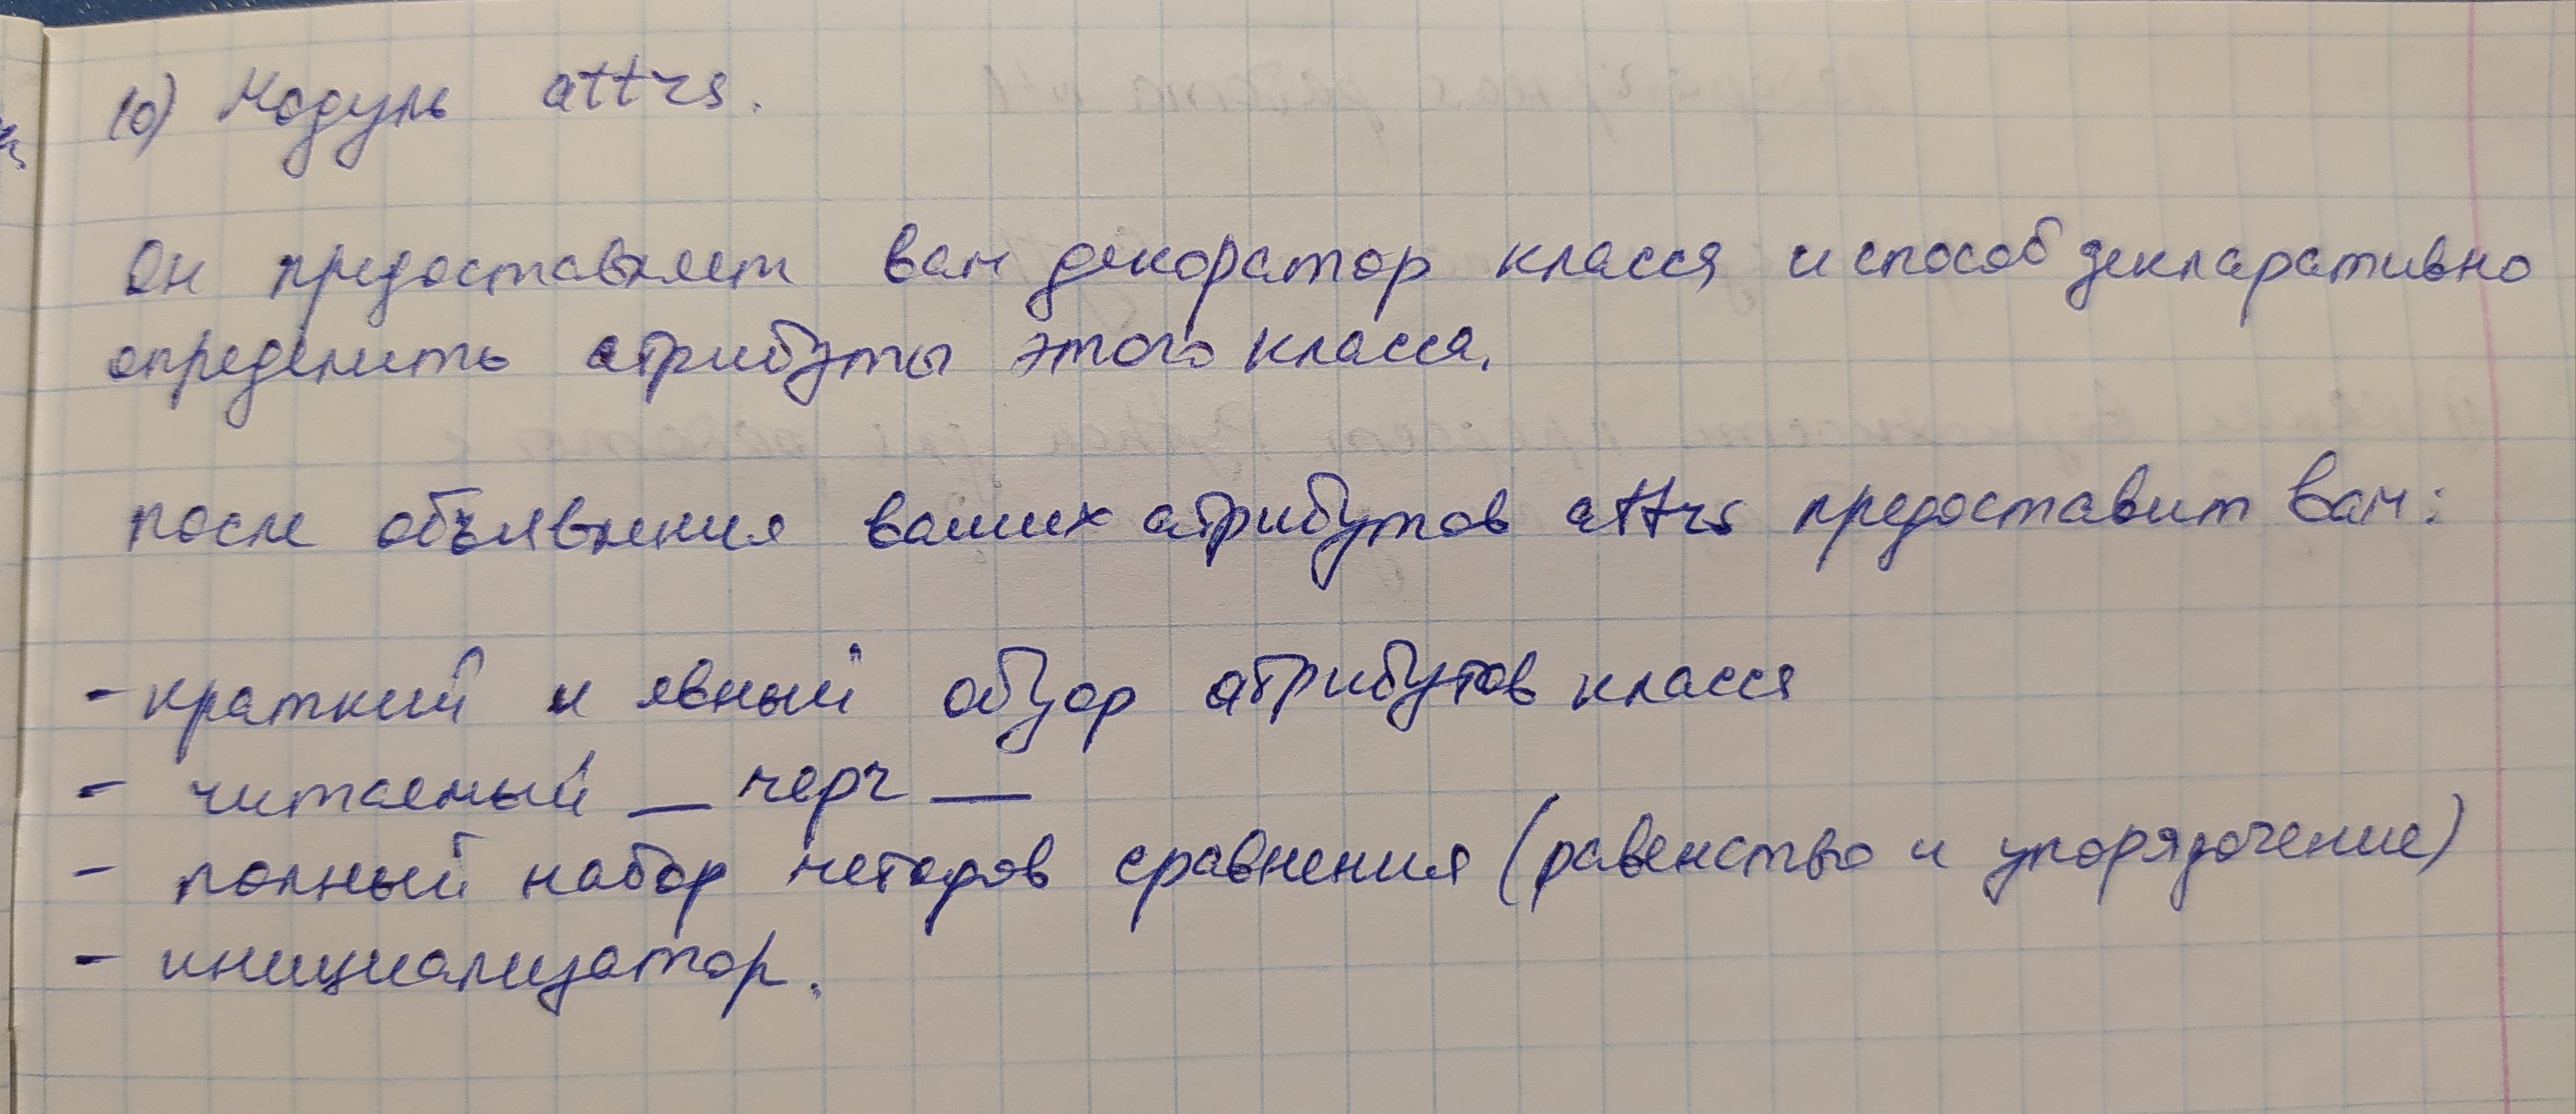 10) Модуль attrs.
Он предоставляет вам декоратор класса и способ декларативно
определить атрибуты этого класса.
после объявления ваших атрибутов attrs предоставит вам:
- краткий и явный обзор атрибутов класса
- читаемый __ черч __
- полный набор методов сравнения (равенство и упорядочение)
- инициализатор.